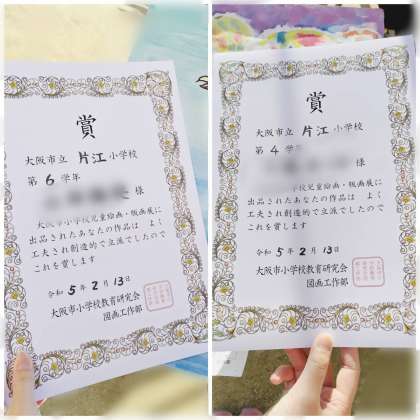 賞
大阪市立 片江 小学校
第 6 学年
様
大阪市小学校児童絵画・版画展に
出品されたあなたの作品は よく
工夫され創造的で立派でしたので
これを賞します
令和 5 年 2 月 13 日
大阪市小学校教育研究会
図画工作部
賞
大阪市立 片江 小学校
第 4 学年
様
大阪市小学校児童絵画・版画展に
出品されたあなたの作品は よく
工夫され創造的で立派でしたので
これを賞します
令和 5 年 2 月 13 日
大阪市小学校教育研究会
図画工作部